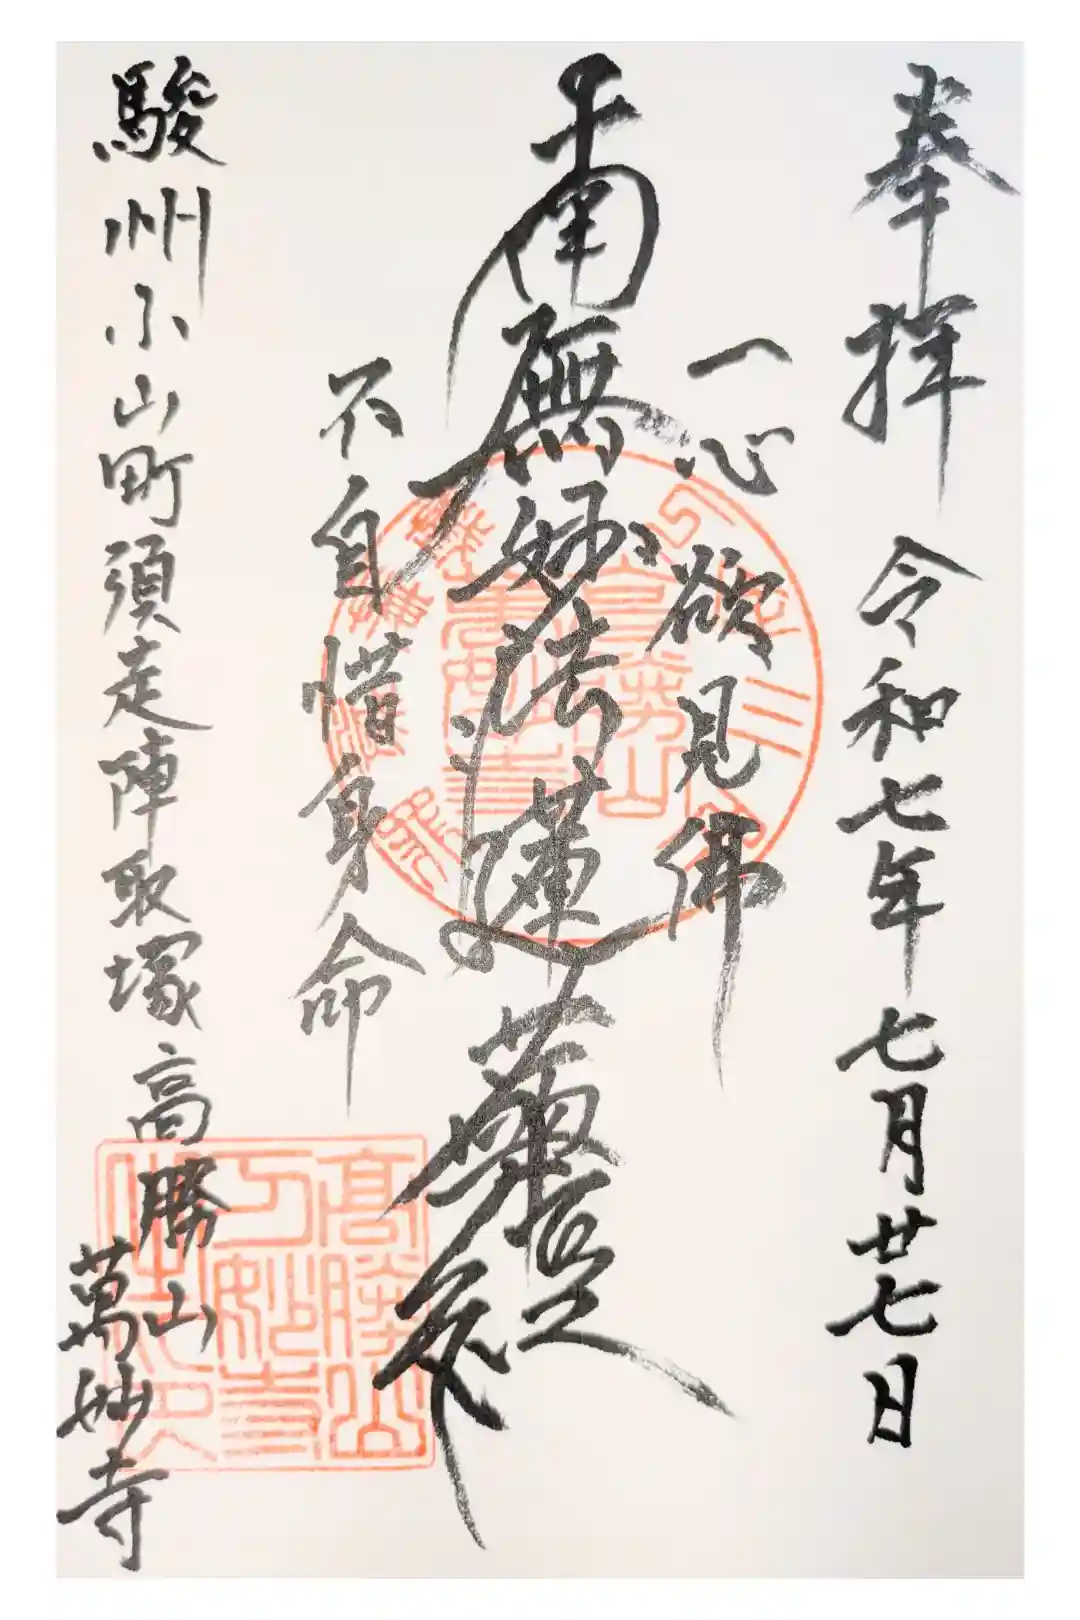 奉拝 令和七年七月廿七日
一心欲見佛
南無妙法蓮華経
不自惜身命
駿州小山町須走陣取塚高勝山
萬妙寺
高勝山
妙寺